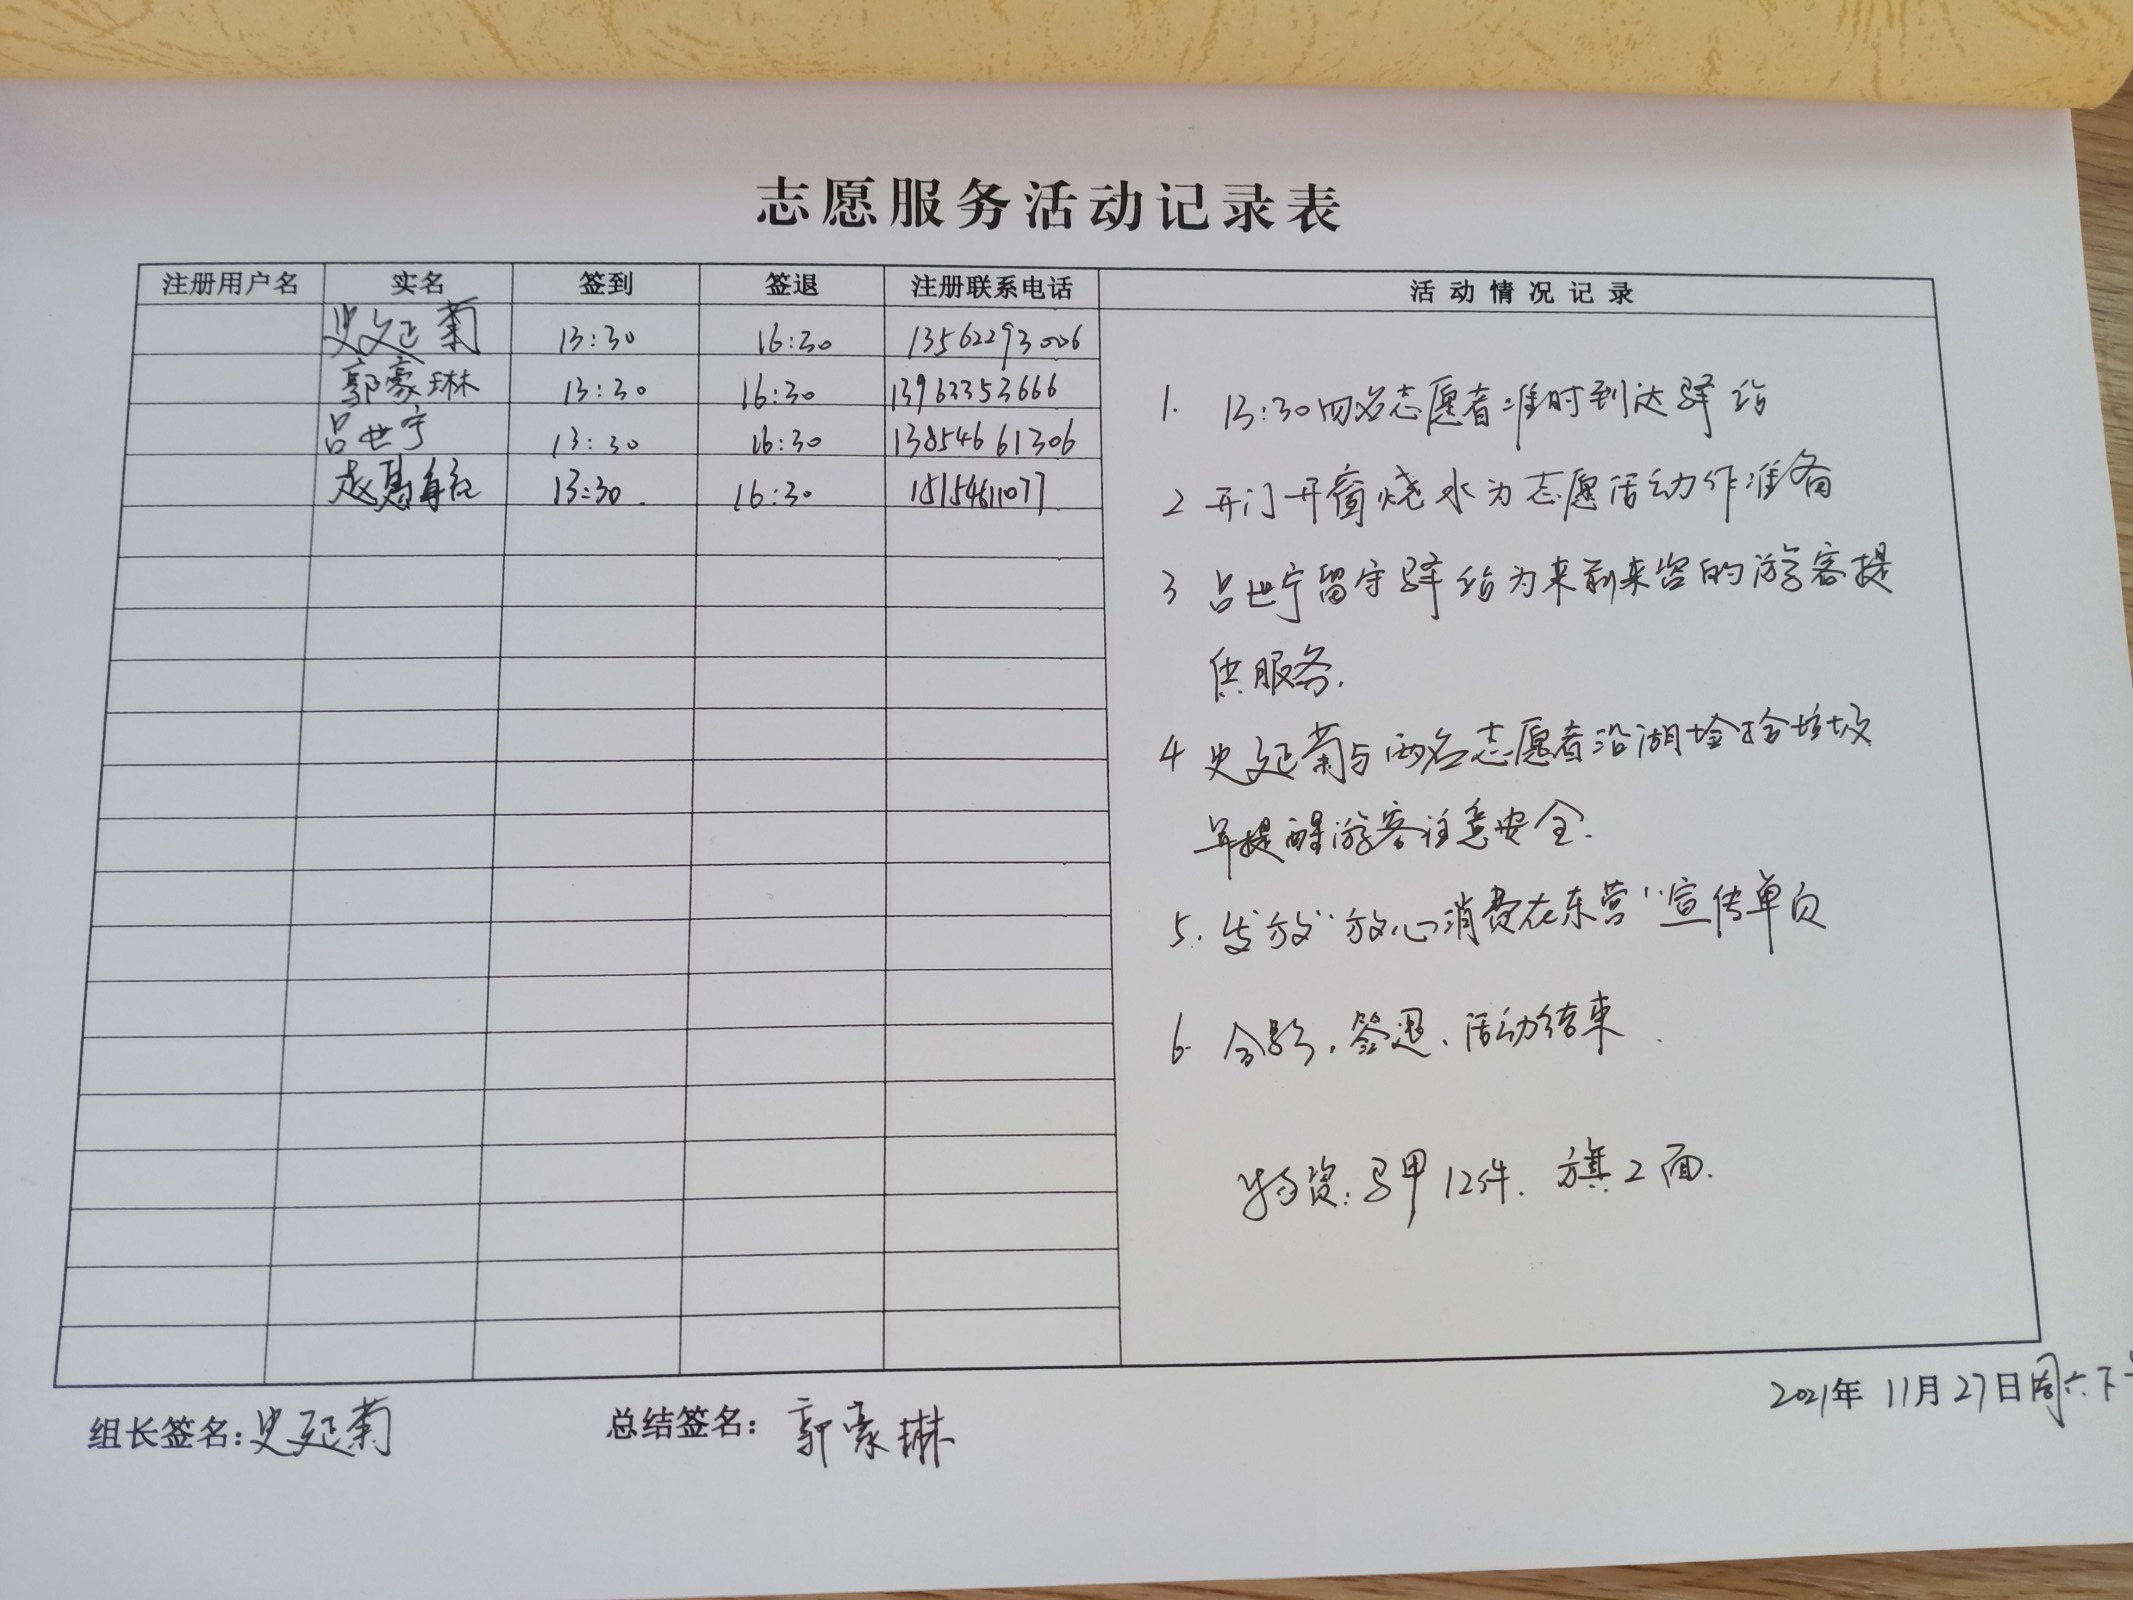 志愿服务活动记录表
注册用户名 实名 签到 签退 注册联系电话 活动情况记录
史延菊 13:30 16:30 13562293006
郭豪琳 13:30 16:30 13963353666
吕世宁 13:30 16:30 13854661306
赵 13:30 16:30 15154611077
1. 13:30四名志愿者准时到达驿站
2 开门开窗烧水为志愿活动作准备
3 吕世宁留守驿站为来前来的游客提
供服务.
4 史延菊与两名志愿者沿湖捡拾垃圾
并提醒游客注意安全.
5. 发放"放心消费在东营"宣传单页
6. 合影、签退、活动结束.
物资:马甲12件. 旗2面.
2021年 11月27日周六下
组长签名:史延菊 总结签名: 郭豪琳